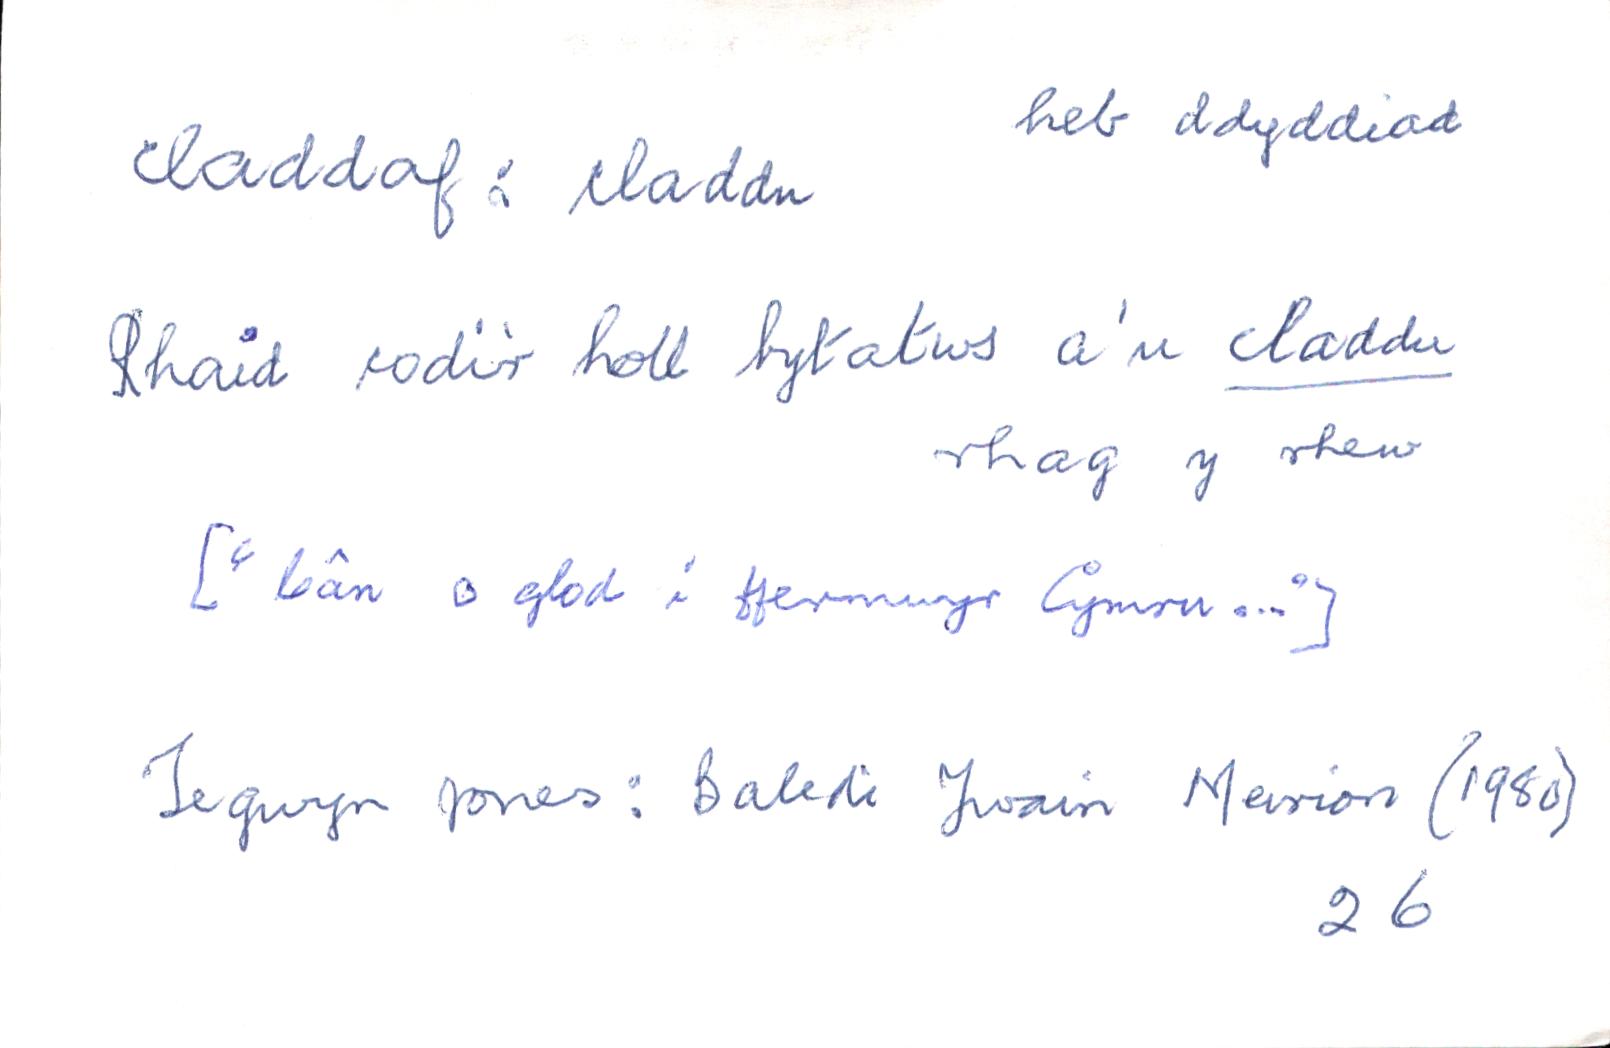 heb ddyddiad
claddaf: claddu
Rhaid codi'r holl bytatws a'u claddu
rhag y rhew
["Cân o glod i ffermwyr Cymru..."]
Tegwyn Jones: Baledi Ywain Meirion (1980)
26